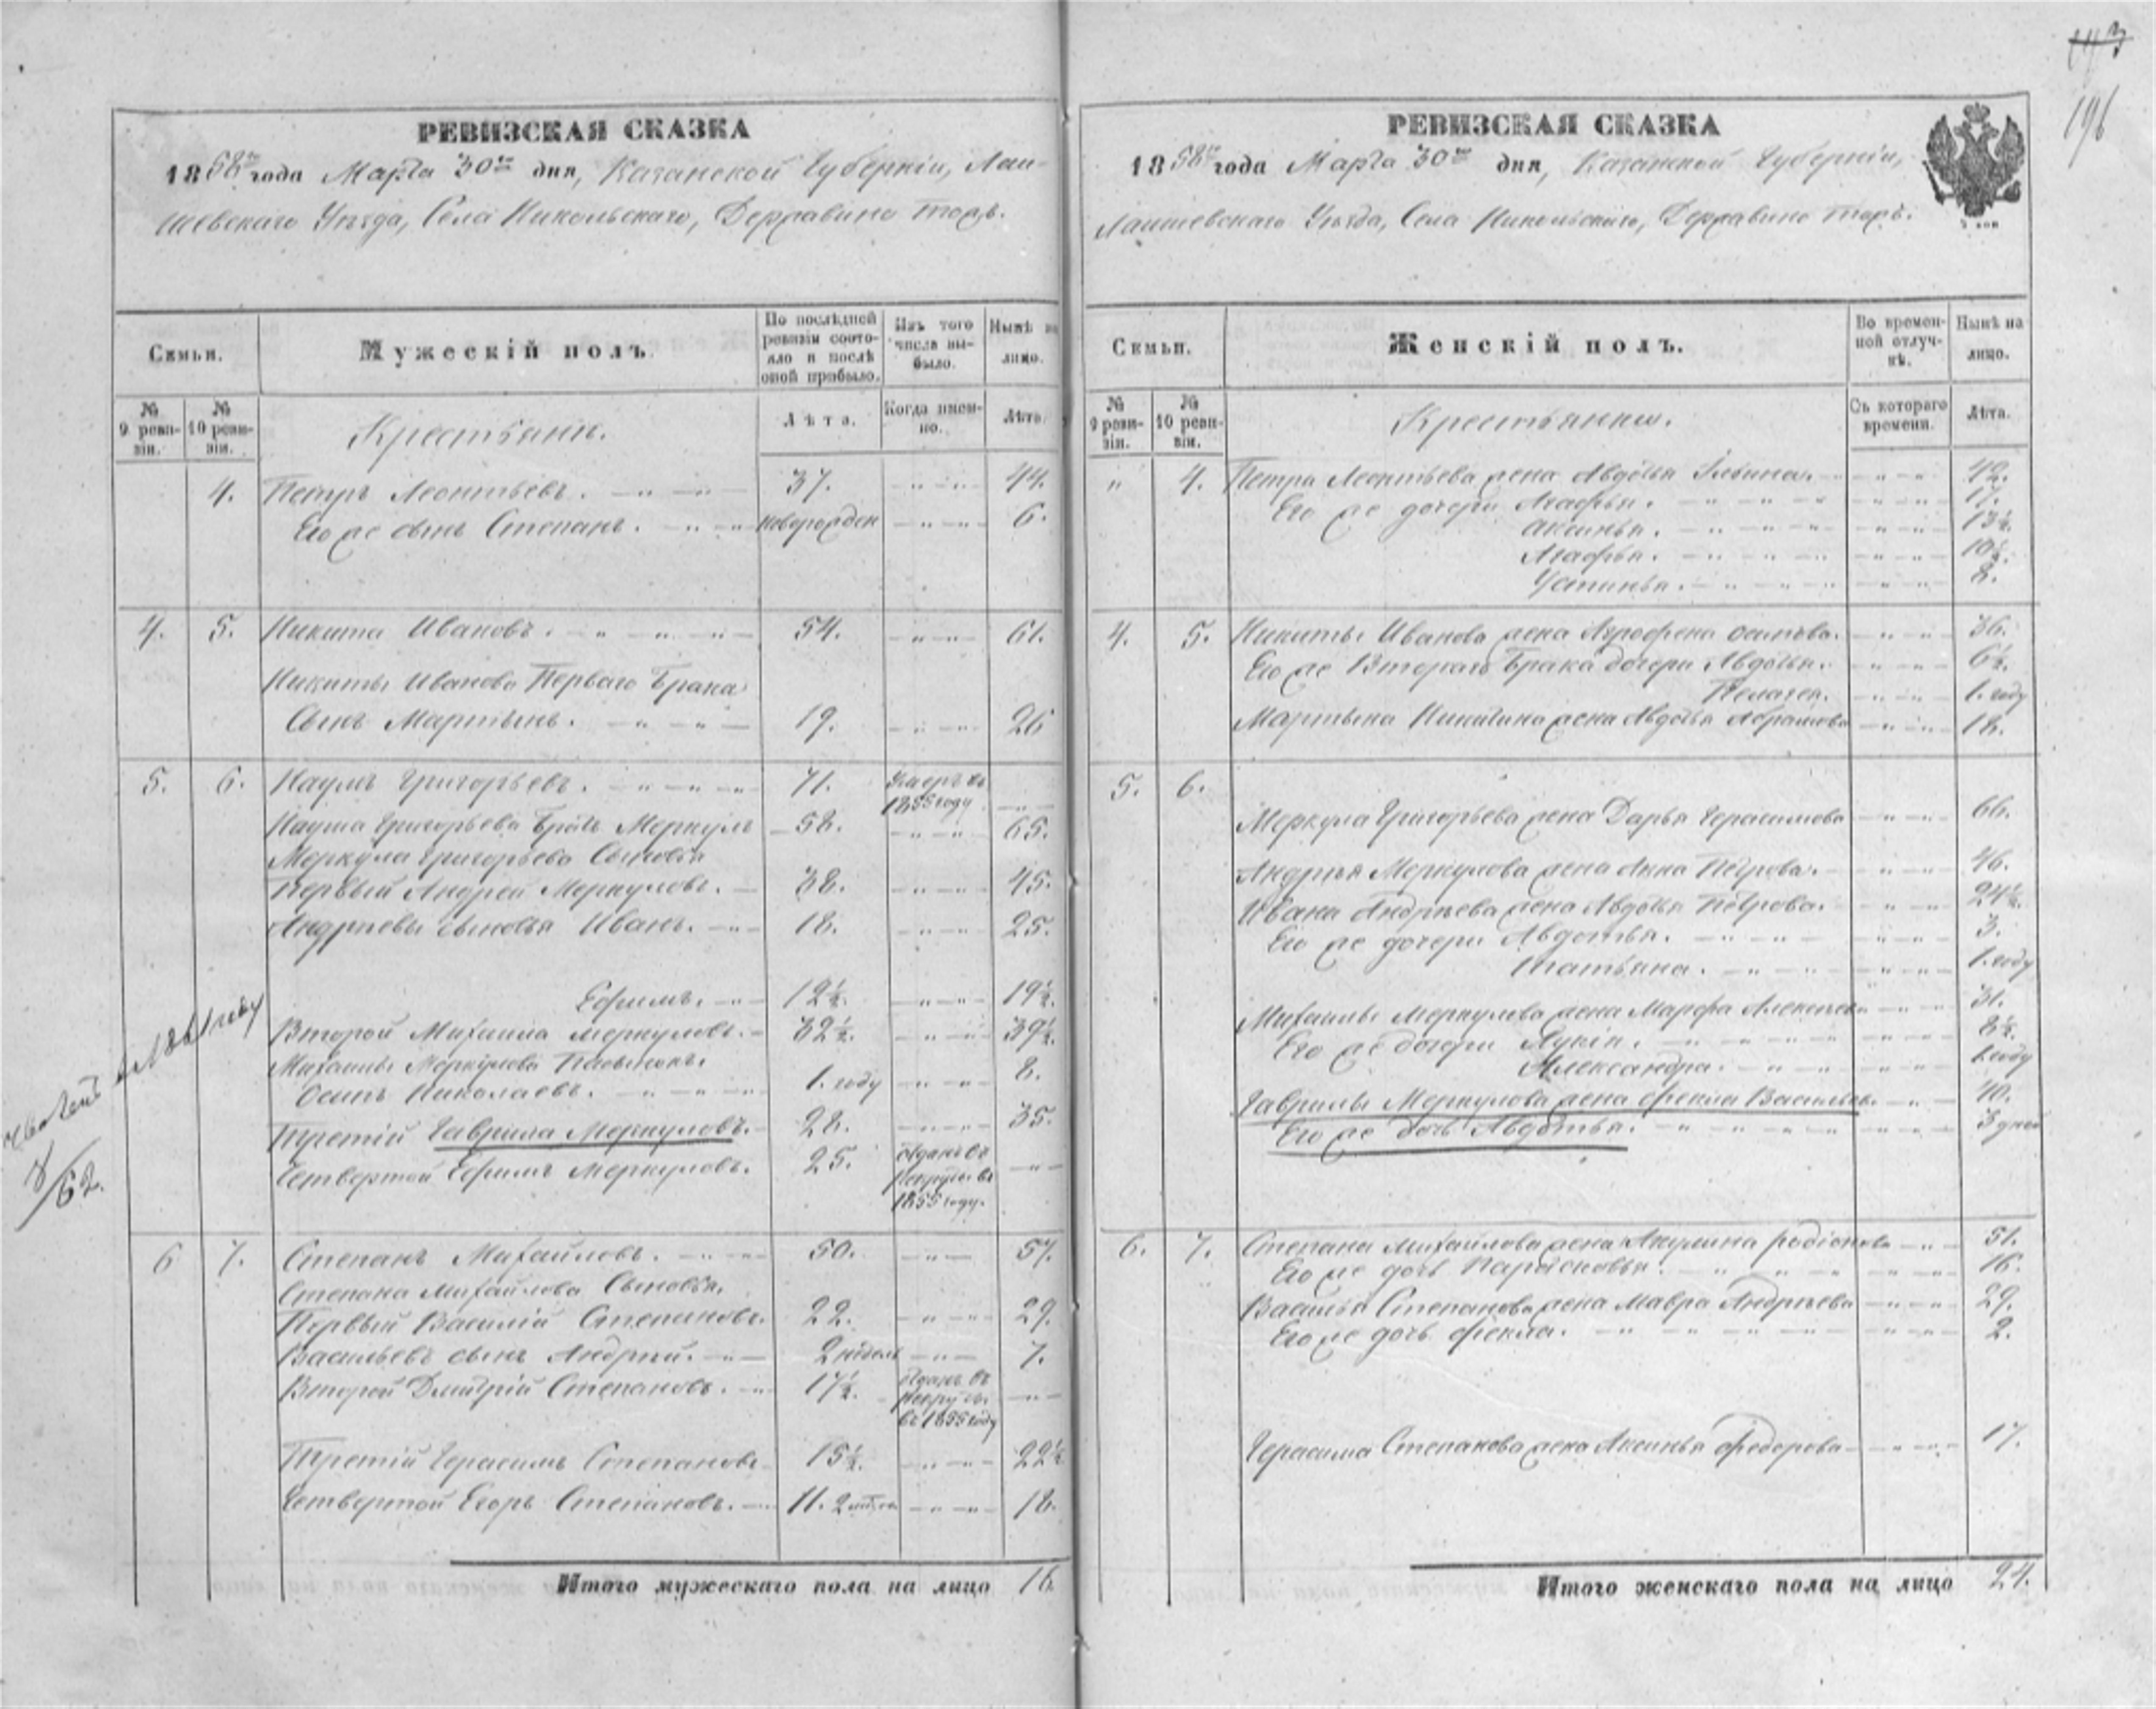 143
196
РЕВИЗСКАЯ СКАЗКА
1858го года Марта 30го дня, Казанской Губерніи, Лаи-
шевскаго Уѣзда, Села Никольскаго, Державино тожъ.
Семьи.
Мужескій полъ.
По послѣдней ревизіи состо-яло и послѣ оной прибыло.
Изъ того числа вы-было.
Нынѣ на лицо.
№ 9 реви-зіи.
№ 10 реви-зіи.
Крестьяне.
Лѣта.
Когда имен-но.
Лѣта.
4. Петръ Леонтьевъ. 37. 44.
Его же сынъ Степанъ. новорожден 6.
4. 5. Никита Ивановъ. 54. 61.
Никиты Иванова Перваго Брака
Сынъ Мартынъ. 19. 26
5. 6. Наумъ Григорьевъ. 71. Умеръ въ 1855 году
Наума Григорьева Братъ Меркулъ 58. 65.
Меркула Григорьева Сыновья
Первый Андрей Меркуловъ. 38. 45.
Андреевы сыновья Иванъ. 18. 25.
Ефимъ. 12½. 19½.
Второй Михаила Меркуловъ. 32½. 39½.
Михаилы Меркулова
Осипъ Николаевъ. 1. году 8.
Третій Гаврила Меркуловъ. 28. 35.
Четвертой Ефимъ Меркуловъ. 25. Отданъ въ рекруты въ 1855 году.
8/62.
6 7. Степанъ Михайловъ. 50. 57.
Степана Михайлова Сыновья.
Первый Василій Степановъ. 22. 29.
Васильевъ сынъ Андрей. 2 недѣль 7.
Второй Дмитрій Степановъ. 17½. Отданъ въ рекруты въ 1855 году
Третій Герасимъ Степановъ 15½. 22½
Четвертой Егоръ Степановъ. 11. 18.
Итого мужескаго пола на лицо 16
РЕВИЗСКАЯ СКАЗКА
1858го года Марта 30го дня, Казанской Губерніи,
Лаишевскаго Уѣзда, Села Никольскаго, Державино тожъ.
Семьи.
Женскій полъ.
Во времен-ной отлуч-кѣ.
Нынѣ на лицо.
№ 9 реви-зіи.
№ 10 реви-зіи.
Крестьянки.
Съ котораго времени.
Лѣта.
" 4. Петра Леонтьева жена Авдотья Ильина. 42.
Его же дочери Агафья. 17.
Аксинья. 13½.
Агафья. 10½.
Устинья. 8.
4. 5. Никиты Иванова жена Аграфена Осипова. 36.
Его же Втораго Брака дочери Авдотья. 6½.
Пелагея. 1. году
Мартына Никитина жена Авдотья Абрамова 18.
5. 6.
Меркула Григорьева жена Дарья Герасимова 66.
Андрея Меркулова жена Анна Петрова. 46.
Ивана Андреева жена Авдотья Петрова. 24½.
Его же дочери Авдотья. 3.
Татьяна. 1. году
Михаилы Меркулова жена Марфа Алексѣева 31.
Его же дочери 8½.
Александра. 1. году
Гаврилы Меркулова жена Фекла Васильева. 40.
Его же дочь Авдотья. 3 дней
6. 7. Степана Михайлова жена Акулина Родіонова 51.
Его же дочь Парасковья. 16.
Василья Степанова жена Мавра Андреева 29.
Его же дочь Фекла. 2.
Герасима Степанова жена Аксинья Федорова 17.
Итого женскаго пола на лицо 24.